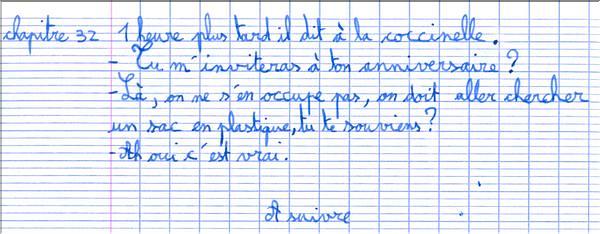 chapitre 32 1 heure plus tard il dit à la coccinelle.
- Tu m'inviteras à ton anniversaire?
- Là, on ne s'en occupe pas, on doit aller chercher
un sac en plastique, tu te souviens?
- Ah oui c'est vrai.
A suivre